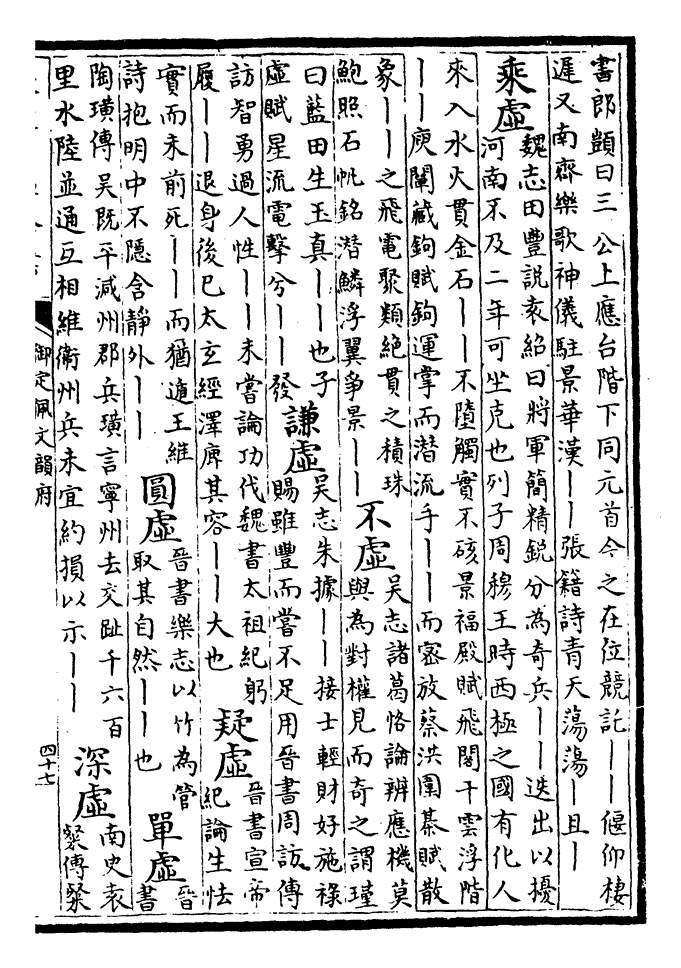 書郎顗曰三公上應台階下同元首今之在位競託丨丨偃仰棲
遲又南齊樂歌神儀駐景華漢丨丨張籍詩青天蕩蕩丨且丨
乘虛
魏志田豐說袁紹曰將軍簡精銳分為奇兵丨丨迭出以擾
河南不及二年可坐克也列子周穆王時西極之國有化人
來入水火貫金石丨丨不墮觸實不硋景福殿賦飛閣干雲浮階
丨丨庾闡藏鉤賦鉤運掌而潛流手丨丨而密放蔡洪圍棊賦散
象丨丨之飛電聚類絕貫之積珠
鮑照石帆銘潛鱗浮翼爭景丨丨
不虛
吳志諸葛恪論辨應機莫
與為對權見而奇之謂瑾
曰藍田生玉真丨丨也子
虛賦星流電擊兮丨丨發
謙虛
吳志朱據丨丨接士輕財好施祿
賜雖豐而嘗不足用晉書周訪傳
訪智勇過人性丨丨未嘗論功代魏書太祖紀躬
履丨丨退身後已太玄經澤庳其容丨丨大也
疑虛
晉書宣帝
紀論生怯
實而未前死丨丨而猶遁王維
詩抱明中不隱含靜外丨丨
圓虛
晉書樂志以竹為管
取其自然丨丨也
單虛
晉
書
陶璜傳吳既平減州郡兵璜言寧州去交趾千六百
里水陸並通互相維衛州兵未宜約損以示丨丨
深虛
南史袁
粲傳粲
御定佩文韻府
四十七